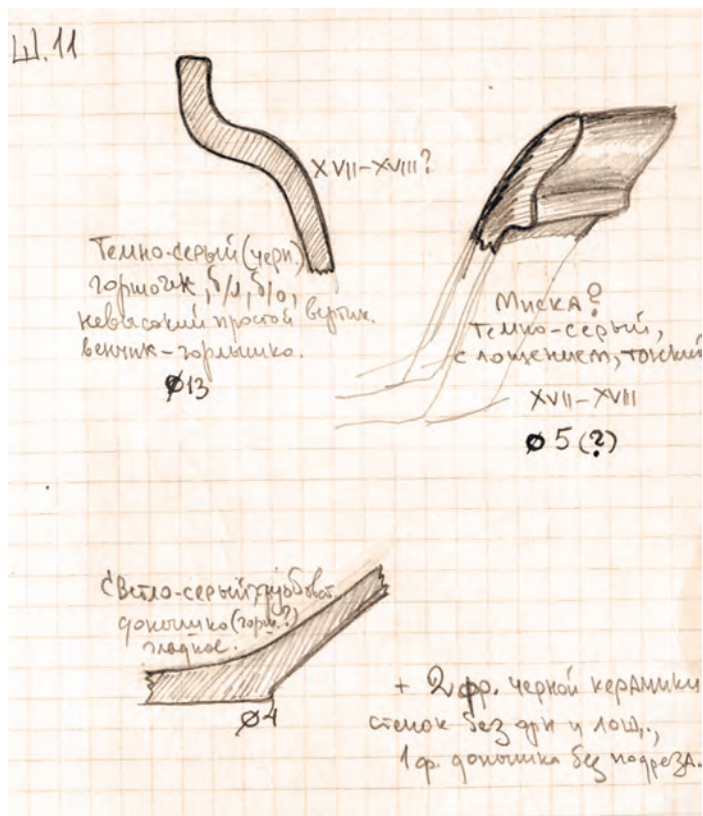 Ш.11
XVII–XVIII?
Темно-серый (черн.)
горшочек, б/л, б/о,
невысокий простой вертик.
венчик-горлышко.
Ø13
Миска?
Темно-серый,
с лощением, тонкий
XVII–XVIII
Ø 5 (?)
Светло-серый, грубоват.
донышко (горш.?)
гладкое.
Ø4
+ 2 фр. черной керамики
стенок без орн и лощ.,
1 ф. донышка без подреза.